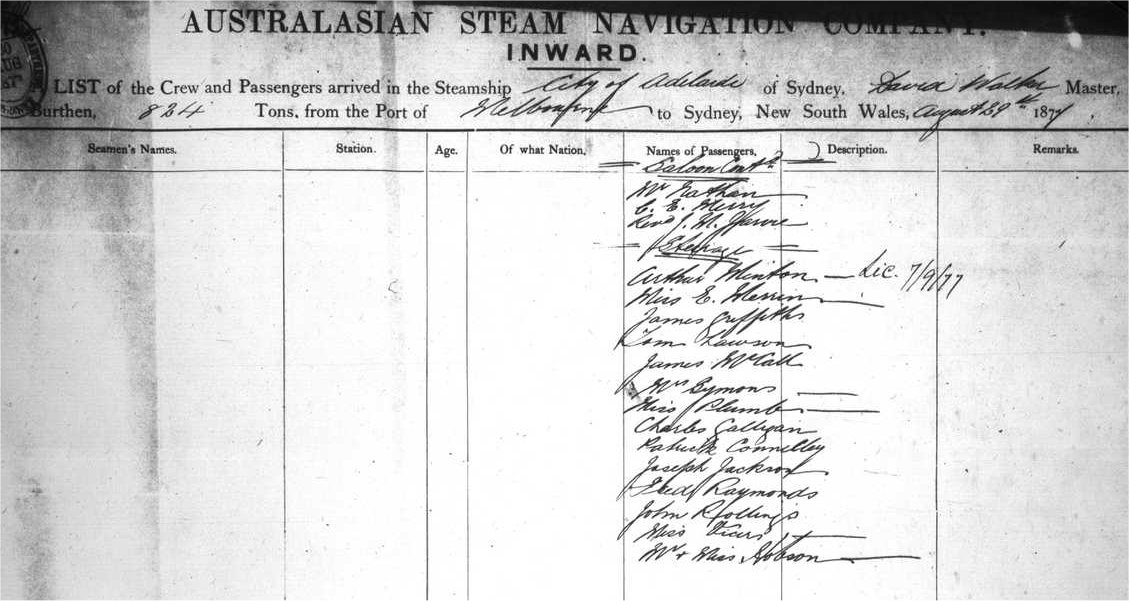 AUSTRALASIAN STEAM NAVIGATION COMPANY.
INWARD.
LIST of the Crew and Passengers arrived in the Steamship City of Adelaide of Sydney, David Walker Master,
Burthen, 824 Tons, from the Port of Melbourne to Sydney, New South Wales, August 29th 1877
Seamen's Names. Station. Age. Of what Nation. Names of Passengers. Description. Remarks.
Saloon Contd
Mr Nathan
C. E. Merry
Revd J. M.
Steerage
Arthur Minton — Lic. 7/9/77
Miss E. Merrin
James Griffiths
Tom Lawson
James McCall
Mrs Symons
Miss Plumb
Charles Galligan
Patrick Connelley
Joseph Jackson
Fred Raymonds
John
Miss
Mr + Miss Hobson